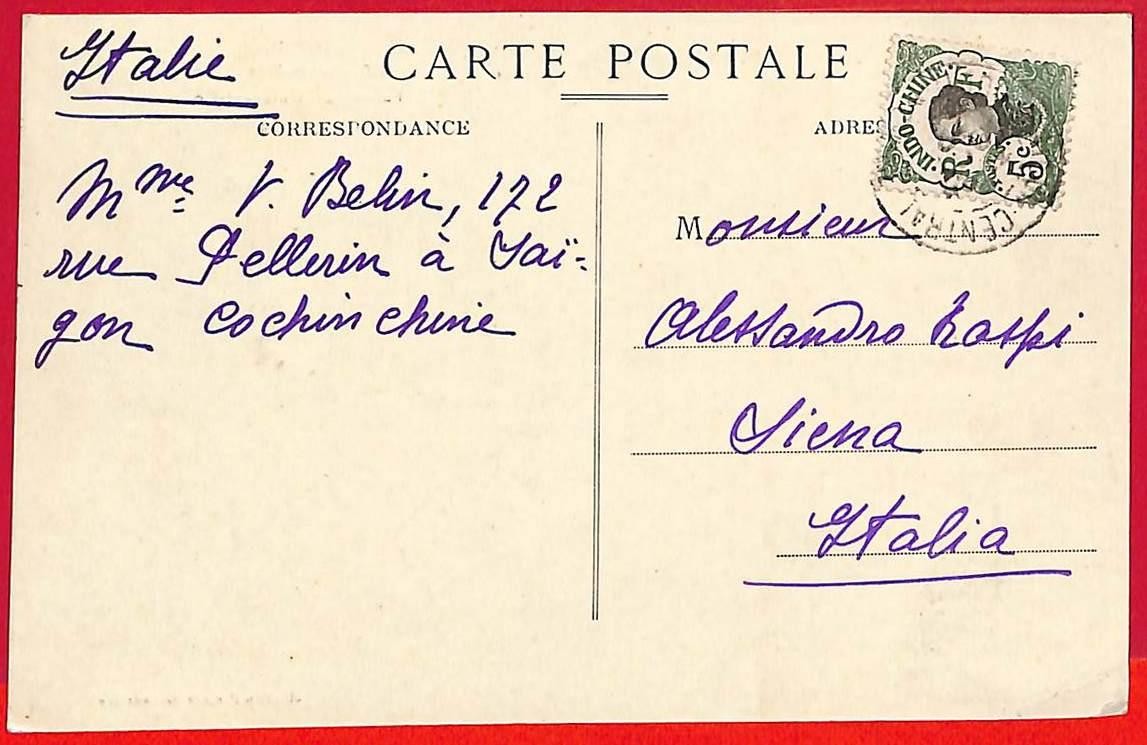 Italie
CARTE POSTALE
CORRESPONDANCE
Mme V. Belin, 172
rue Pellerin à Saï-
gon Cochinchine
ADRES
INDO-CHINE
RF
5c
CENTRAL
Monsieur
Alessandro Raspi
Siena
Italia